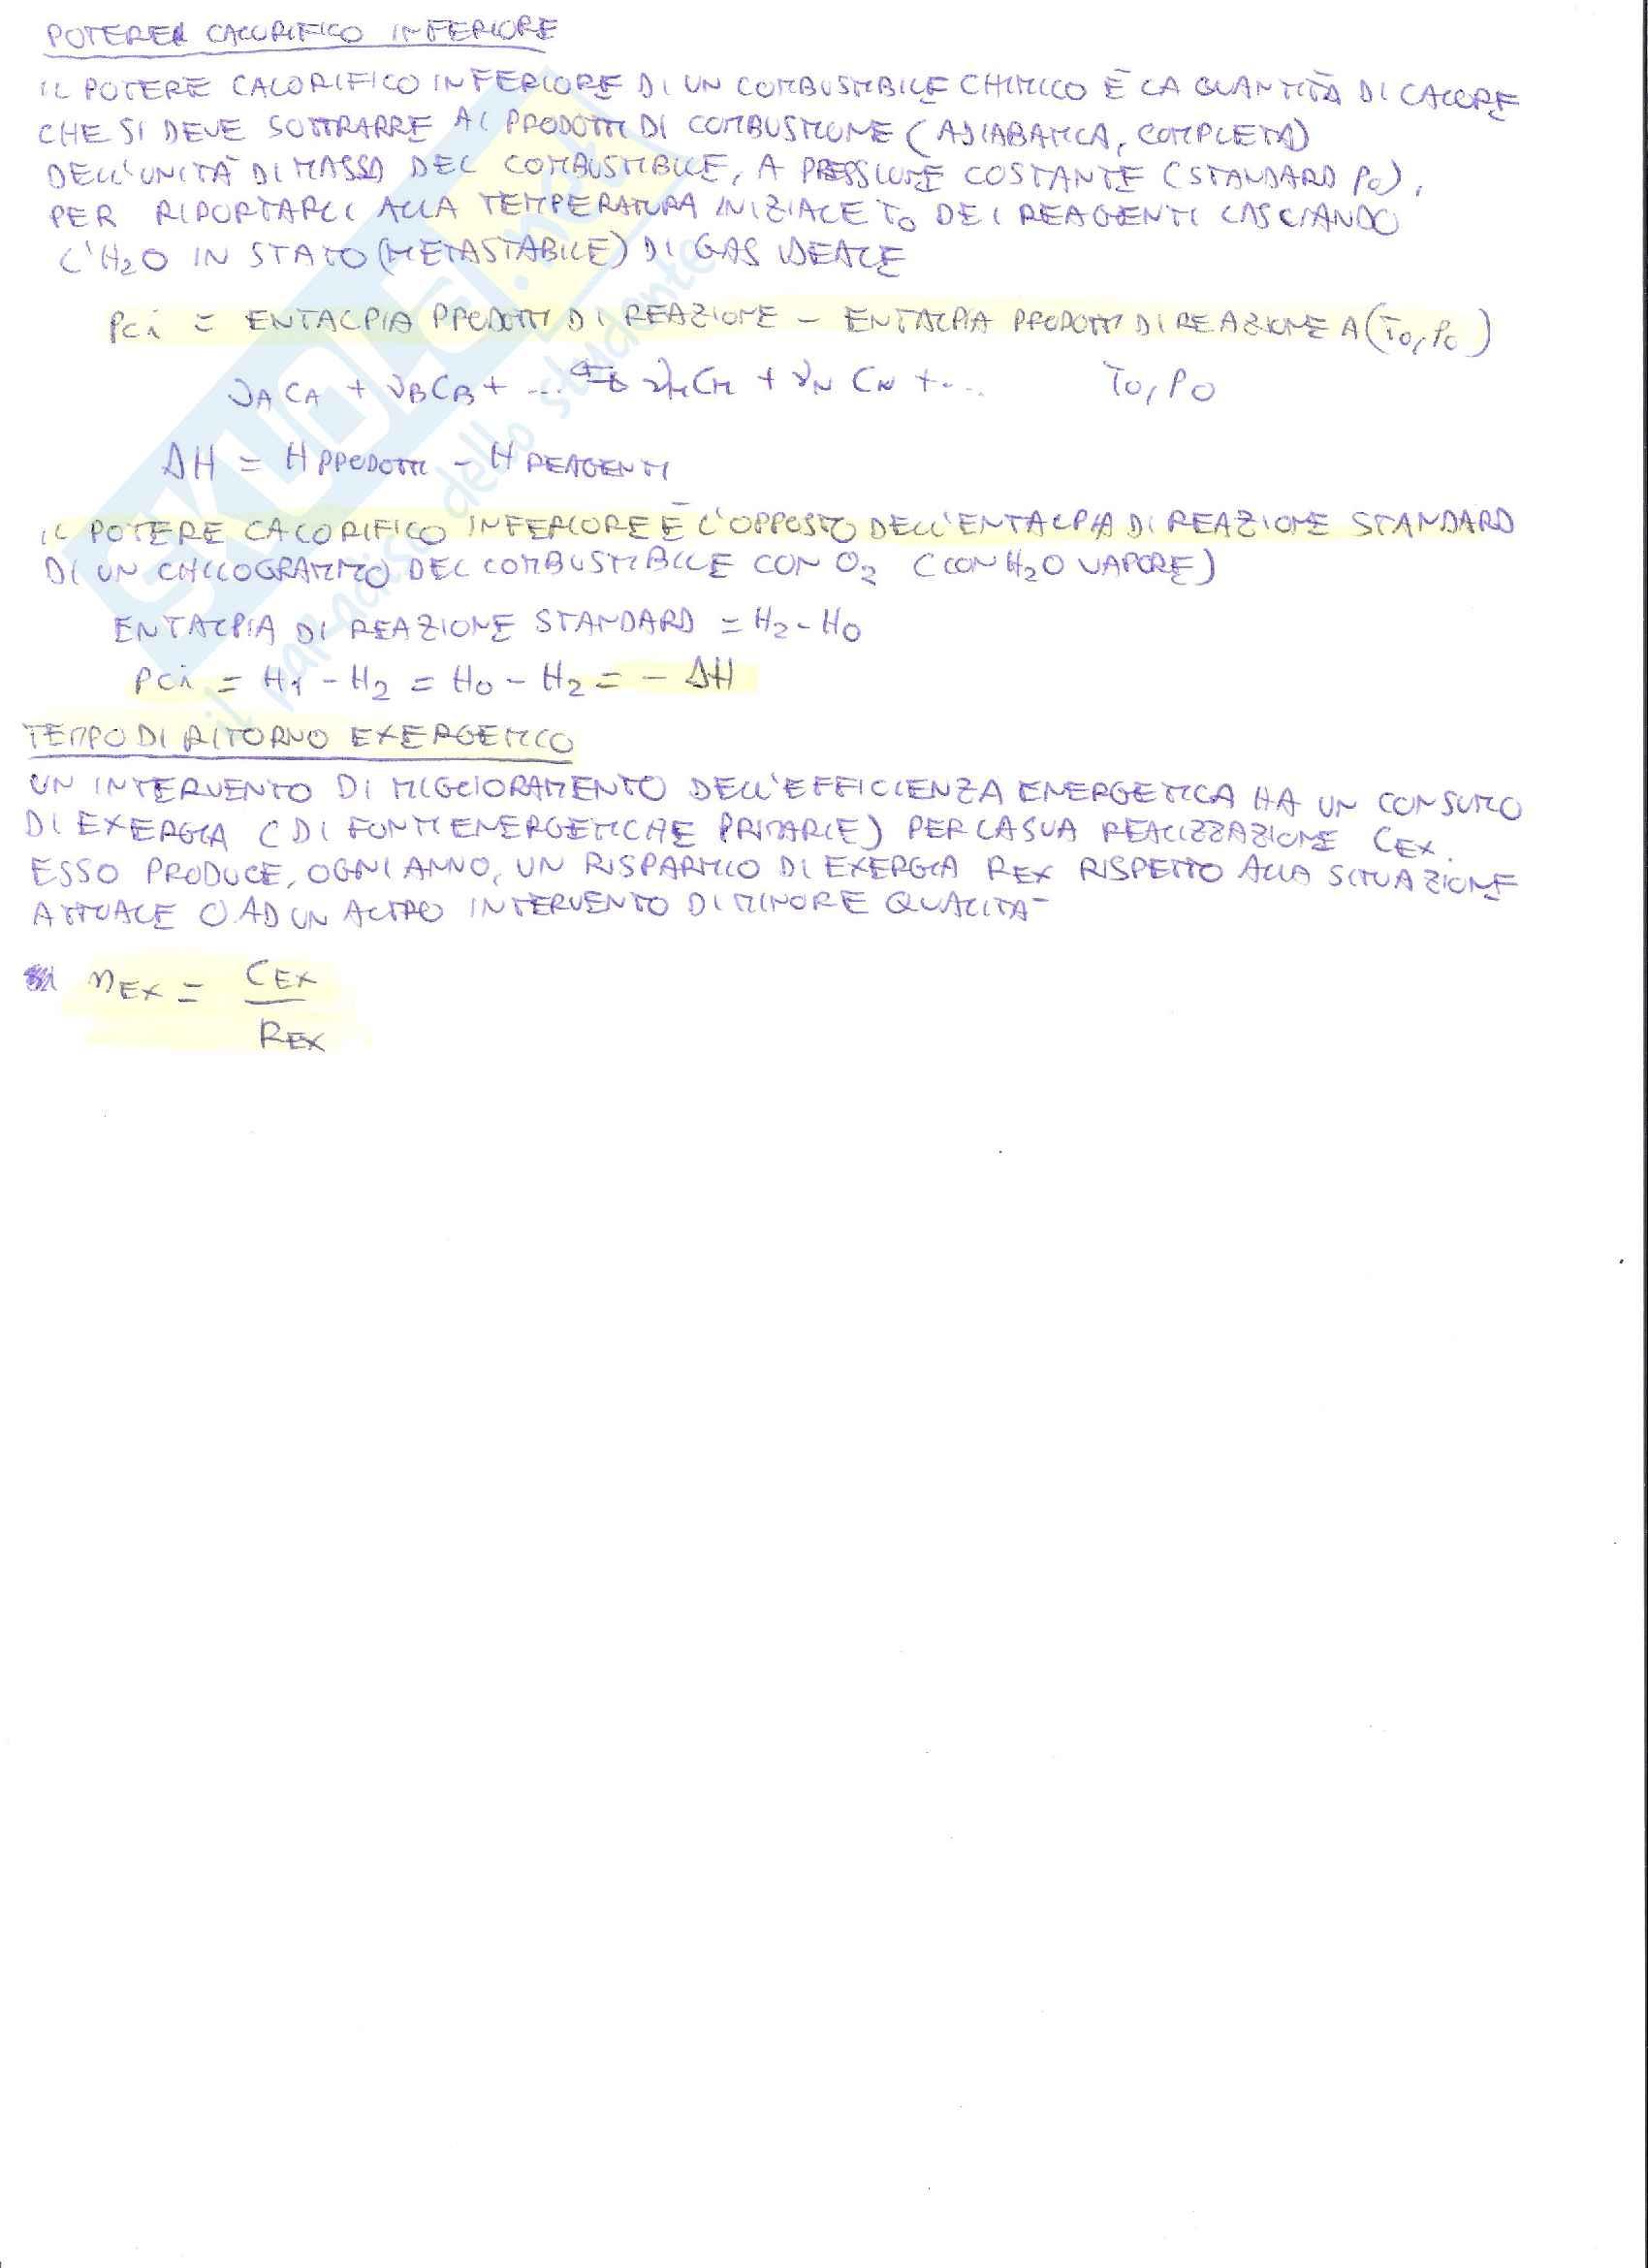 POTERE CALORIFICO INFERIORE
IL POTERE CALORIFICO INFERIORE DI UN COMBUSTIBILE CHIMICO È LA QUANTITÀ DI CALORE
CHE SI DEVE SOTTRARRE AI PRODOTTI DI COMBUSTIONE (ADIABATICA, COMPLETA)
DELL'UNITÀ DI MASSA DEL COMBUSTIBILE, A PRESSIONE COSTANTE (STANDARD P0),
PER RIPORTARLI ALLA TEMPERATURA INIZIALE T0 DEI REAGENTI LASCIANDO
L'H2O IN STATO (METASTABILE) DI GAS IDEALE
Pci = ENTALPIA PRODOTTI DI REAZIONE - ENTALPIA PRODOTTI DI REAZIONE A (T0, P0)
νA CA + νB CB + ... ⇆ νM CM + νN CN + ... T0, P0
ΔH = H PRODOTTI - H REAGENTI
IL POTERE CALORIFICO INFERIORE È L'OPPOSTO DELL'ENTALPIA DI REAZIONE STANDARD
DI UN CHILOGRAMMO DEL COMBUSTIBILE CON O2 (CON H2O VAPORE)
ENTALPIA DI REAZIONE STANDARD = H2 - H0
Pci = H1 - H2 = H0 - H2 = - ΔH
TEMPO DI RITORNO EXERGETICO
UN INTERVENTO DI MIGLIORAMENTO DELL'EFFICIENZA ENERGETICA HA UN CONSUMO
DI EXERGIA (DI FONTI ENERGETICHE PRIMARIE) PER LA SUA REALIZZAZIONE CEX.
ESSO PRODUCE, OGNI ANNO, UN RISPARMIO DI EXERGIA REX RISPETTO ALLA SITUAZIONE
ATTUALE O AD UN ALTRO INTERVENTO DI MINORE QUALITÀ
nEX = CEX
REX
SKUOLA.net
il paradiso dello studente